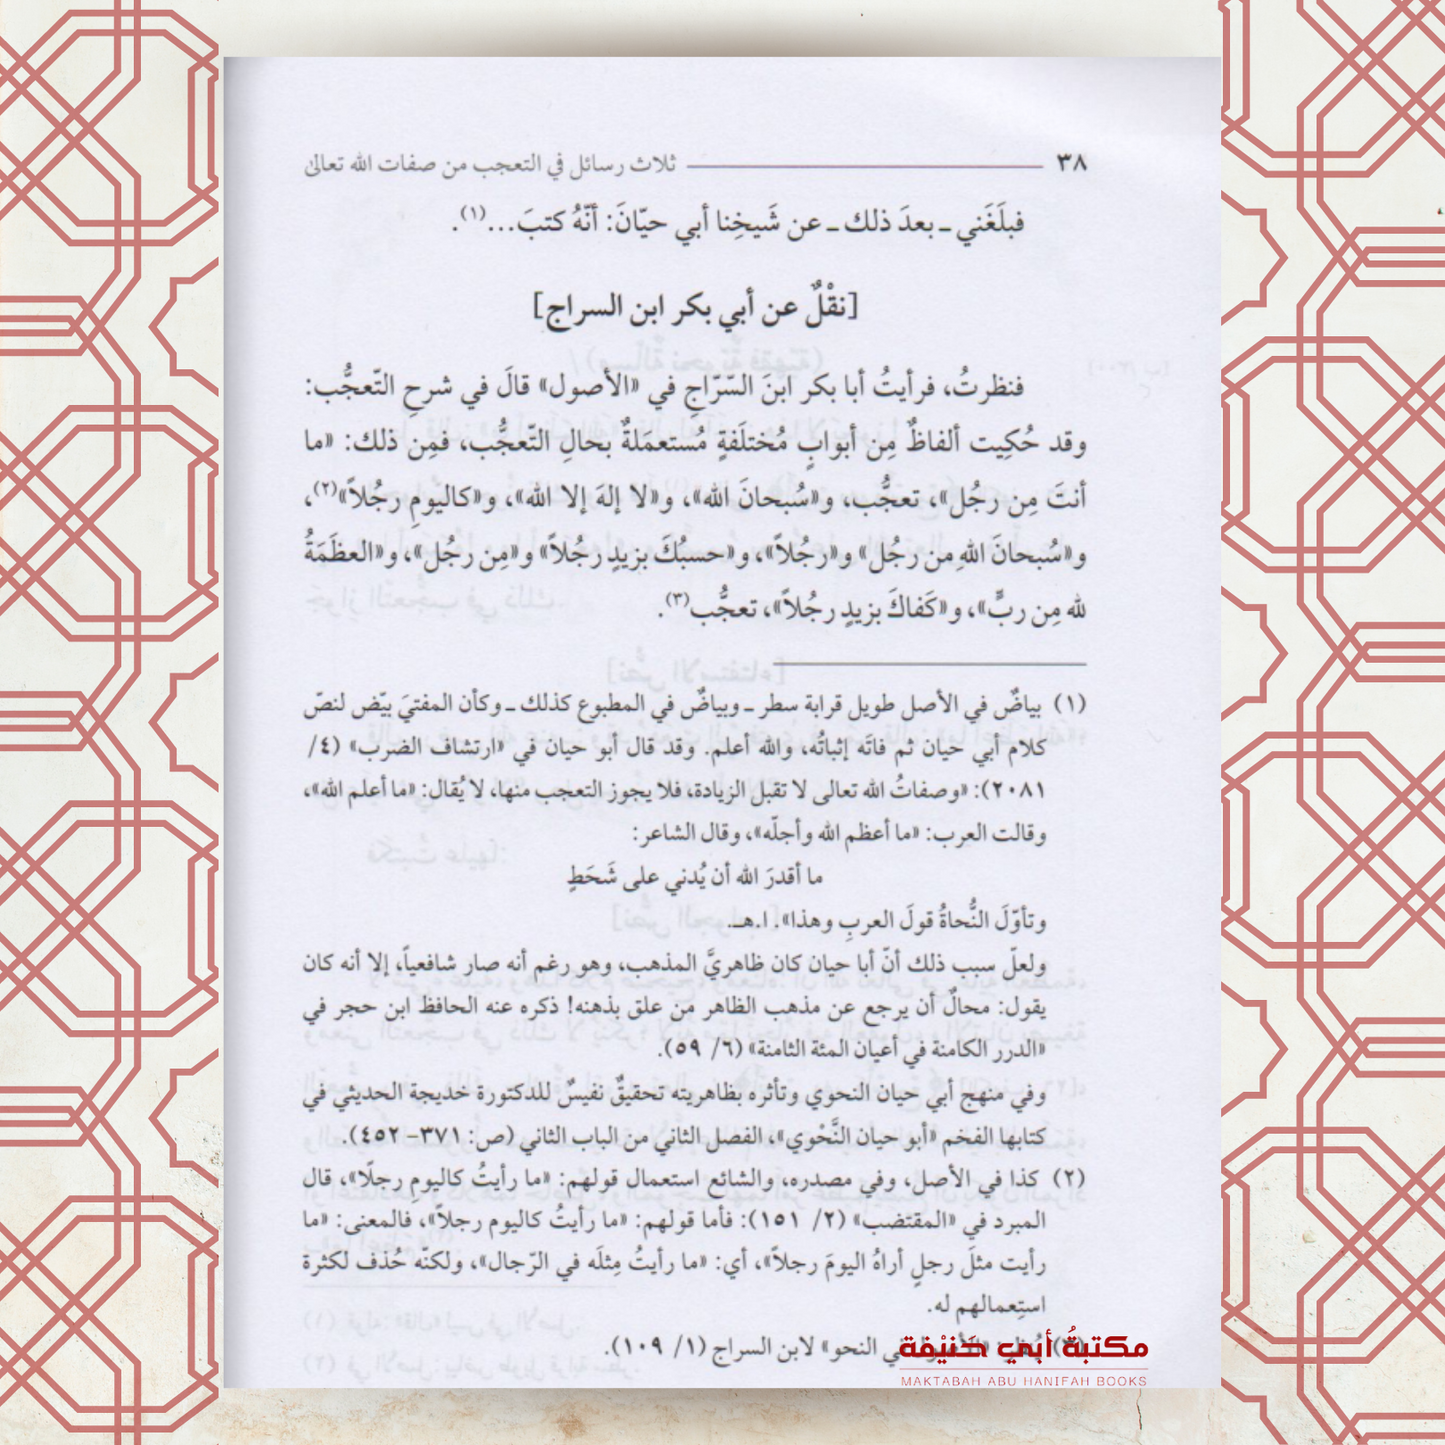 ٣٨ ثلاث رسائل في التعجب من صفات الله تعالى
فبلَغَني ـ بعدَ ذلك ـ عن شَيخِنا أبي حيّانَ: أنّهُ كتبَ...(١).
[نقْلٌ عن أبي بكر ابن السراج]
فنظرتُ، فرأيتُ أبا بكر ابنَ السّرّاجِ في «الأصول» قالَ في شرحِ التّعجُّب:
وقد حُكِيت ألفاظٌ مِن أبوابٍ مُختلَفةٍ مُستعمَلةٌ بحالِ التّعجُّب، فمِن ذلك: «ما
أنتَ مِن رجُل»، تعجُّب، و«سُبحانَ الله»، و«لا إلهَ إلا الله»، و«كاليومِ رجُلاً»(٢)،
و«سُبحانَ اللهِ من رجُل» و«رجُلاً»، و«حسبُكَ بزيدٍ رجُلاً» و«مِن رجُل»، و«العظَمَةُ
لله مِن ربٍّ»، و«كَفاكَ بزيدٍ رجُلاً»، تعجُّب(٣).
(١) بياضٌ في الأصل طويل قرابة سطر ـ وبياضٌ في المطبوع كذلك ـ وكأن المفتيَ بيّض لنصّ
كلام أبي حيان ثم فاتَه إثباتُه، والله أعلم. وقد قال أبو حيان في «ارتشاف الضرب» (٤/
٢٠٨١): «وصفاتُ الله تعالى لا تقبل الزيادة، فلا يجوز التعجب منها، لا يُقال: «ما أعلم الله»،
وقالت العرب: «ما أعظم الله وأجلّه»، وقال الشاعر:
ما أقدرَ الله أن يُدني على شَحَطٍ
وتأوّلَ النُّحاةُ قولَ العربِ وهذا». ا.هـ.
ولعلّ سبب ذلك أنّ أبا حيان كان ظاهريَّ المذهب، وهو رغم أنه صار شافعياً، إلا أنه كان
يقول: محالٌ أن يرجع عن مذهب الظاهر من علق بذهنه! ذكره عنه الحافظ ابن حجر في
«الدرر الكامنة في أعيان المئة الثامنة» (٦/ ٥٩).
وفي منهج أبي حيان النحوي وتأثره بظاهريته تحقيقٌ نفيسٌ للدكتورة خديجة الحديثي في
كتابها الفخم «أبو حيان النَّحْوي»، الفصل الثاني من الباب الثاني (ص: ٣٧١- ٤٥٢).
(٢) كذا في الأصل، وفي مصدره، والشائع استعمال قولهم: «ما رأيتُ كاليومِ رجلًا»، قال
المبرد في «المقتضب» (٢/ ١٥١): فأما قولهم: «ما رأيتُ كاليوم رجلاً»، فالمعنى: «ما
رأيت مثلَ رجلٍ أراهُ اليومَ رجلاً»، أي: «ما رأيتُ مِثلَه في الرّجال»، ولكنّه حُذف لكثرة
استِعمالهم له.
في النحو» لابن السراج (١/ ١٠٩).
مكتبةُ أبي حَنيْفة
MAKTABAH ABU HANIFAH BOOKS